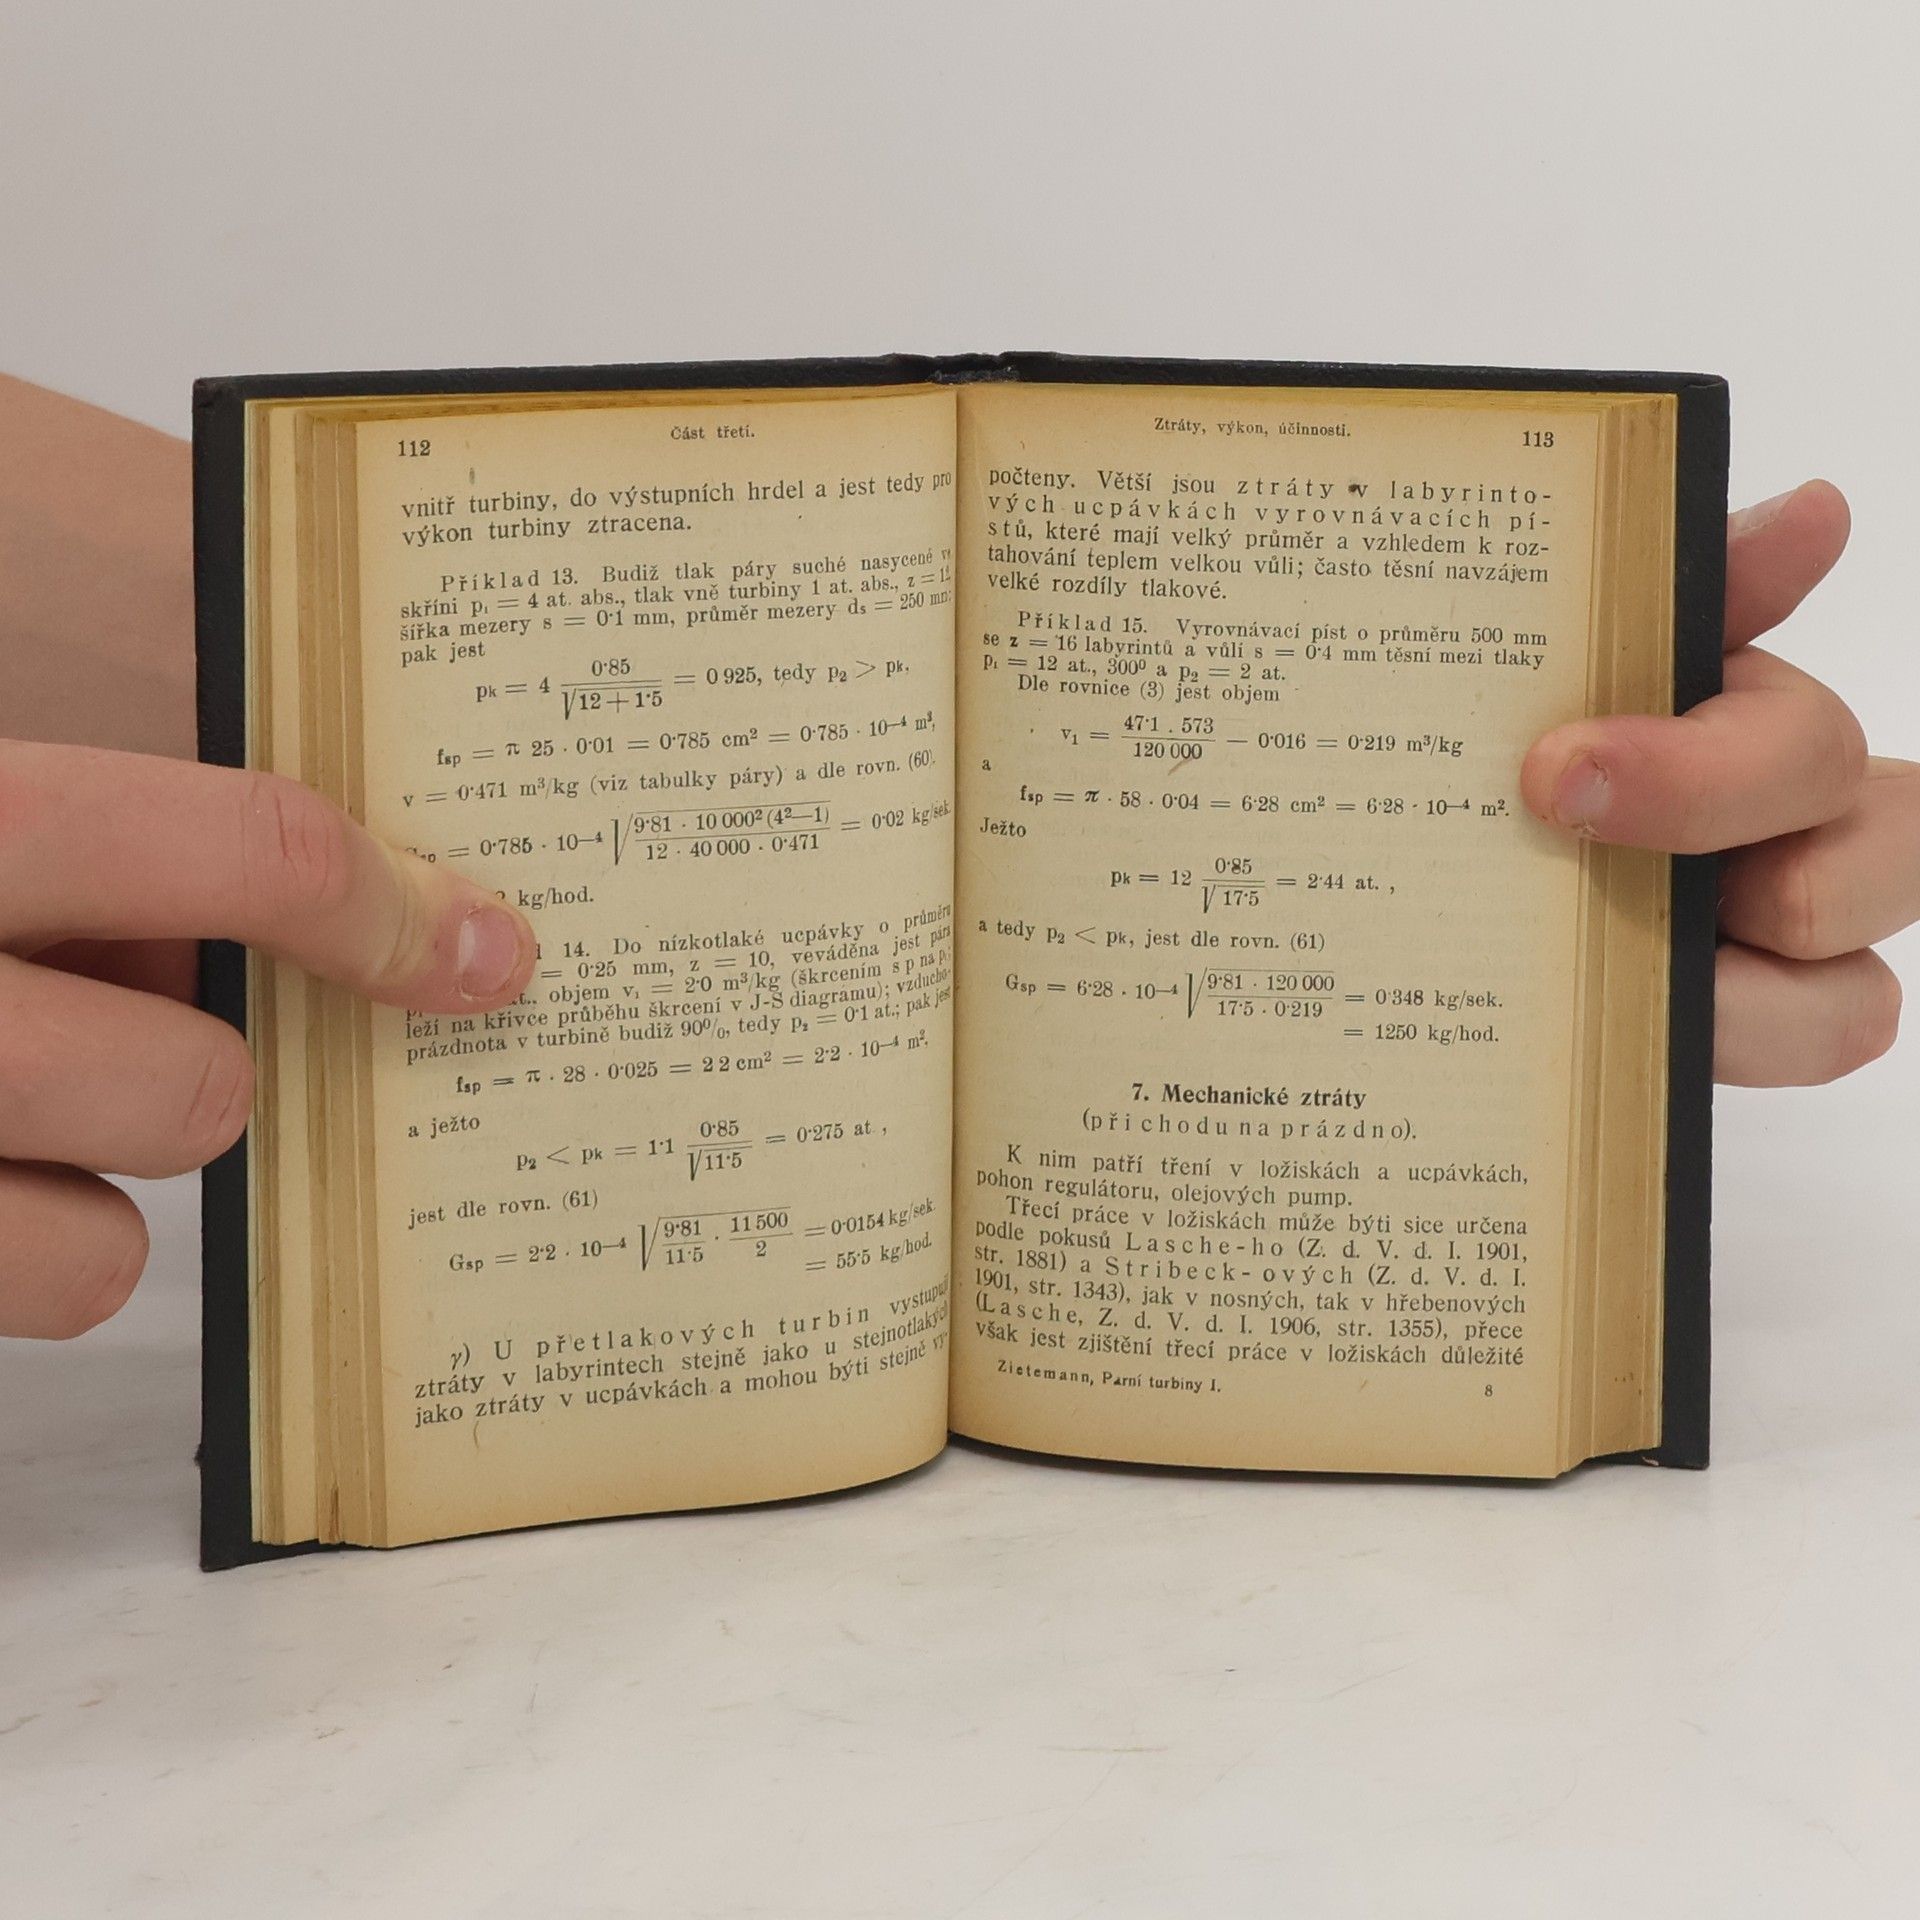 112
Část třetí.
vnitř turbiny, do výstupních hrdel a jest tedy pro
výkon turbiny ztracena.
Příklad 13. Budiž tlak páry suché nasycené
skříni p₁ = 4 at. abs., tlak vně turbiny 1 at. abs., z = 12
šířka mezery s = 0·1 mm, průměr mezery ds = 250 mm:
pak jest
pk = 4 0·85 / √12 + 1·5 = 0 925, tedy p₂ > pk,
fsp = π 25 · 0·01 = 0·785 cm² = 0·785 · 10—⁴ m²,
v = 0·471 m³/kg (viz tabulky páry) a dle rovn. (60).
= 0·785 · 10—⁴ √9·81 · 10 000² (4²—1) / 12 · 40 000 · 0·471 = 0·02 kg/sek.
kg/hod.
14. Do nízkotlaké ucpávky o průměru
= 0·25 mm, z = 10, veváděna jest pára
objem v₁ = 2·0 m³/kg (škrcením s p na p₁
leží na křivce průběhu škrcení v J-S diagramu); vzducho-
prázdnota v turbině budiž 90%, tedy p₂ = 0·1 at.; pak jest
fsp = π · 28 · 0·025 = 2 2 cm² = 2·2 · 10—⁴ m².
a ježto
p₂ < pk = 1·1 0·85 / √11·5 = 0·275 at ,
jest dle rovn. (61)
Gsp = 2·2 · 10—⁴ √9·81 / 11·5 · 11 500 / 2 = 0·0154 kg/sek.
= 55·5 kg/hod.
γ) U přetlakových turbin vystupují
ztráty v labyrintech stejně jako u stejnotlakých
jako ztráty v ucpávkách a mohou býti stejně vy-
Ztráty, výkon, účinnosti.
113
počteny. Větší jsou ztráty v labyrinto-
vých ucpávkách vyrovnávacích pí-
stů, které mají velký průměr a vzhledem k roz-
tahování teplem velkou vůli; často těsní navzájem
velké rozdíly tlakové.
Příklad 15. Vyrovnávací píst o průměru 500 mm
se z = 16 labyrintů a vůlí s = 0·4 mm těsní mezi tlaky
p₁ = 12 at., 300⁰ a p₂ = 2 at.
Dle rovnice (3) jest objem
v₁ = 47·1 . 573 / 120 000 — 0·016 = 0·219 m³/kg
a
fsp = π · 58 · 0·04 = 6·28 cm² = 6·28 · 10—⁴ m².
Ježto
pk = 12 0·85 / √17·5 = 2·44 at. ,
a tedy p₂ < pk, jest dle rovn. (61)
Gsp = 6·28 . 10—⁴ √9·81 · 120 000 / 17·5 · 0·219 = 0·348 kg/sek.
= 1250 kg/hod.
7. Mechanické ztráty
(při chodu na prázdno).
K nim patří tření v ložiskách a ucpávkách,
pohon regulátoru, olejových pump.
Třecí práce v ložiskách může býti sice určena
podle pokusů Lasche-ho (Z. d. V. d. I. 1901,
str. 1881) a Stribeck-ových (Z. d. V. d. I.
1901, str. 1343), jak v nosných, tak v hřebenových
(Lasche, Z. d. V. d. I. 1906, str. 1355), přece
však jest zjištění třecí práce v ložiskách důležité
Zietemann, Parní turbiny I.
8